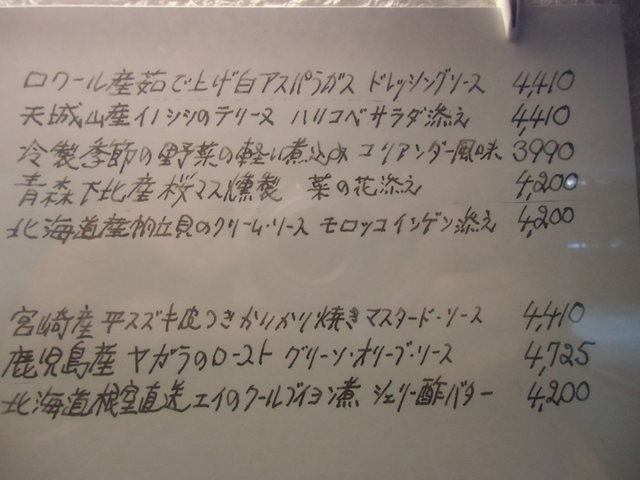 ロワール産茹で上げ白アスパラガス ドレッシングソース 4,410
天城山産イノシシのテリーヌ ハリコベサラダ添え 4,410
冷製季節の野菜の軽い煮込み コリアンダー風味 3990
青森下北産桜マス燻製 菜の花添え 4,200
北海道産帆立貝のクリーム・ソース モロッコインゲン添え 4,200
宮崎産平スズキ皮つきかりかり焼きマスタード・ソース 4,410
鹿児島産ヤガラのロースト グリーン・オリーブ・ソース 4,725
北海道根室直送エイのクールブイヨン煮 シェリー酢バター 4,200